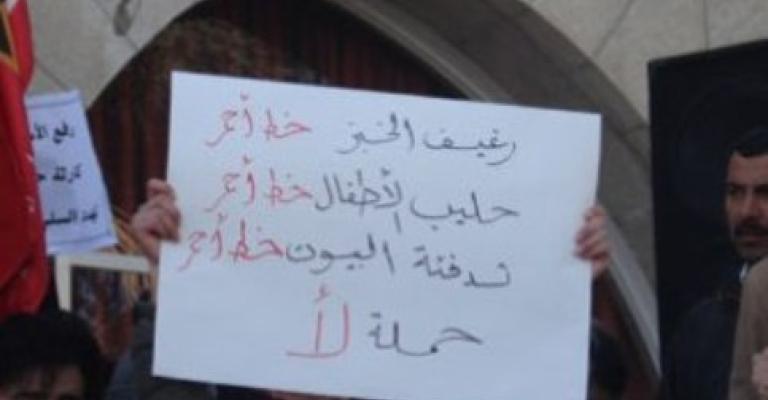 رغيف الخبز خط أحمر
حليب الأطفال خط أحمر
تدفئة البيوت خط أحمر
حملة لأ
رفع الأ
كارثة